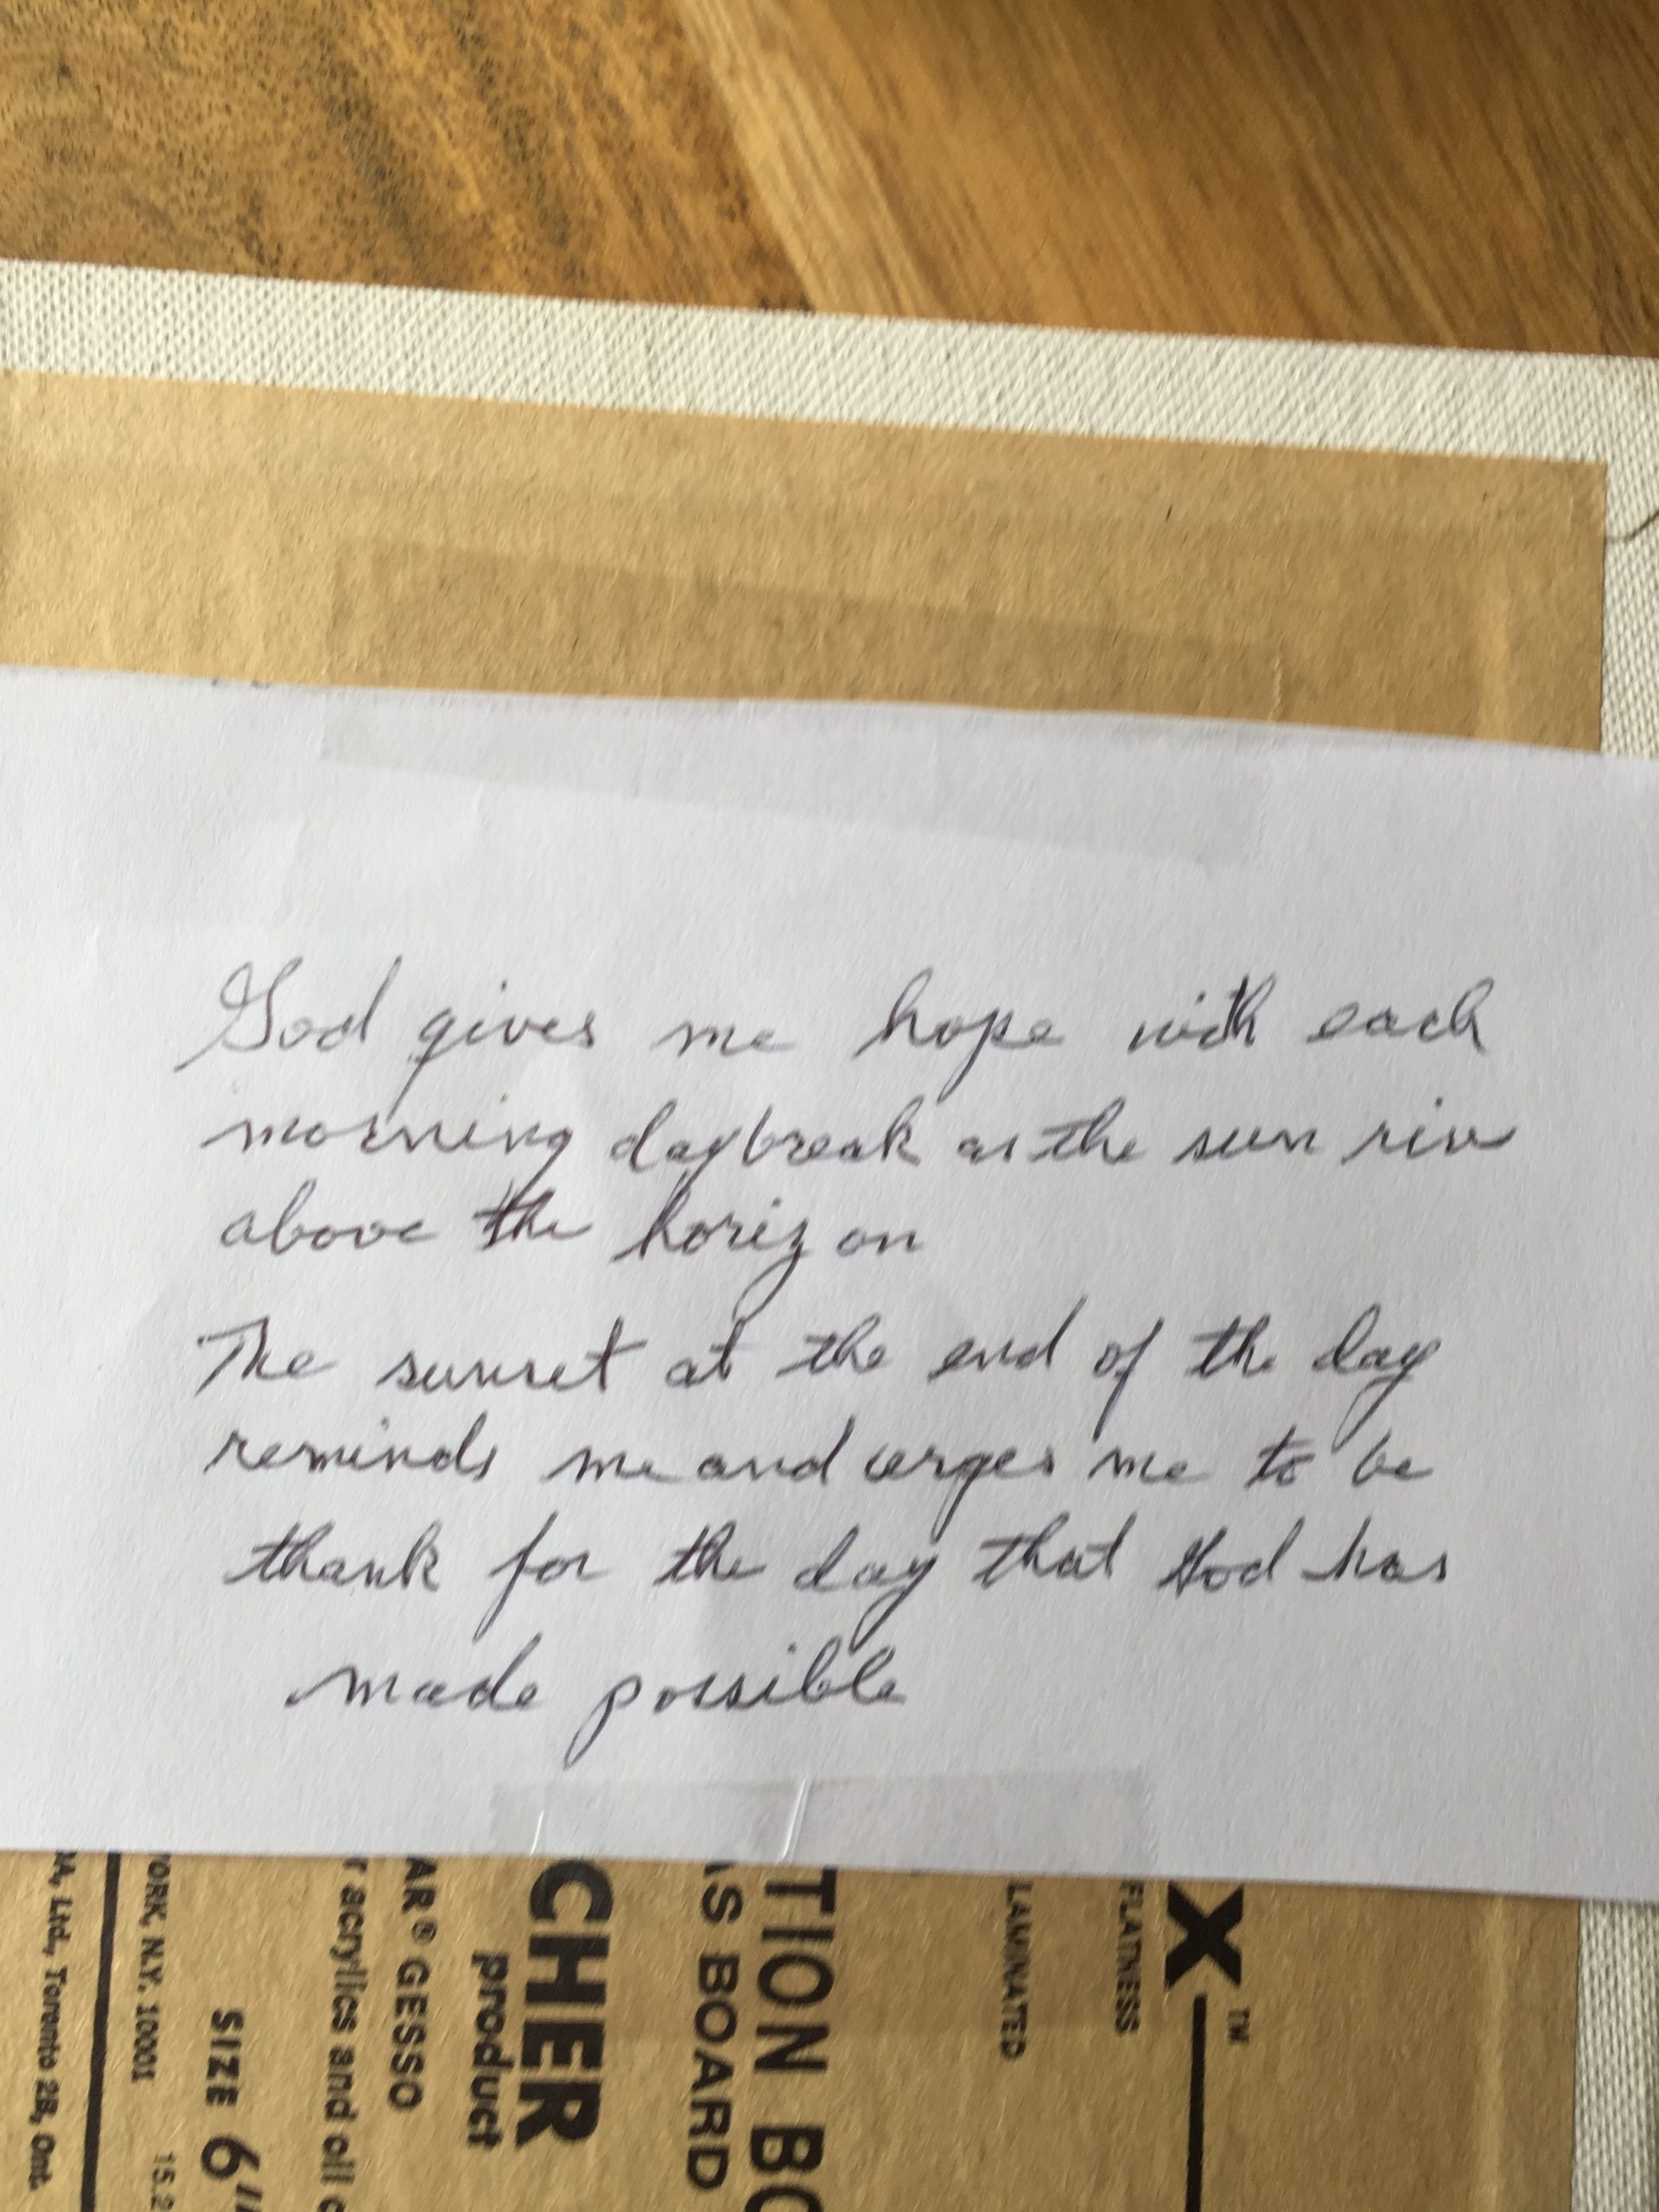 God gives me hope with each
morning daybreak as the sun rise
above the horizon
The sunset at the end of the day
reminds me and urges me to be
thank for the day that God has
made possible
X™
FLATNESS
LAMINATED
TION BO
AS BOARD
CHER
product
AR® GESSO
r acrylics and oil c
SIZE 6"
ORK, N.Y. 10001 15.2
A, Ltd., Toronto 28, Ont.